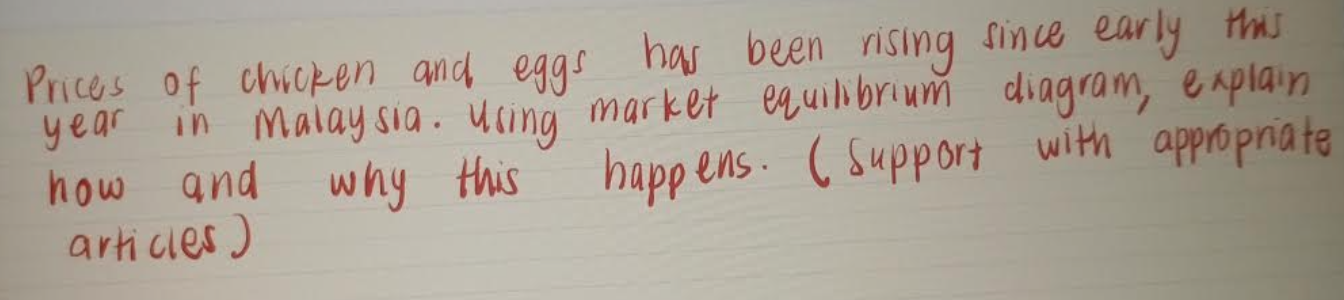 Prices of chicken and eggs has been rising since early this
year in Malaysia. Using market equilibrium diagram, explain
how and why this happens. (Support with appropriate
articles)